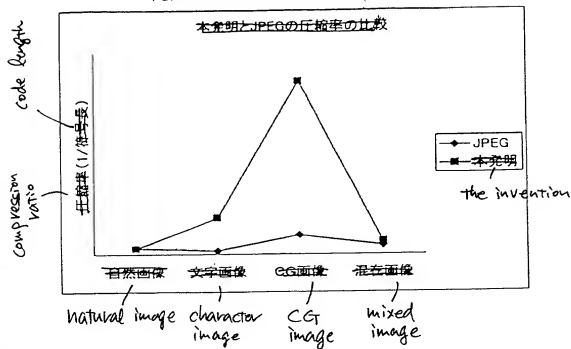 本発明とJPEGの圧縮率の比較
code length
圧縮率(1/符号長)
compression ratio
JPEG
本発明
the invention
自然画像 文字画像 CG画像 混在画像
natural image
character image
CG image
mixed image